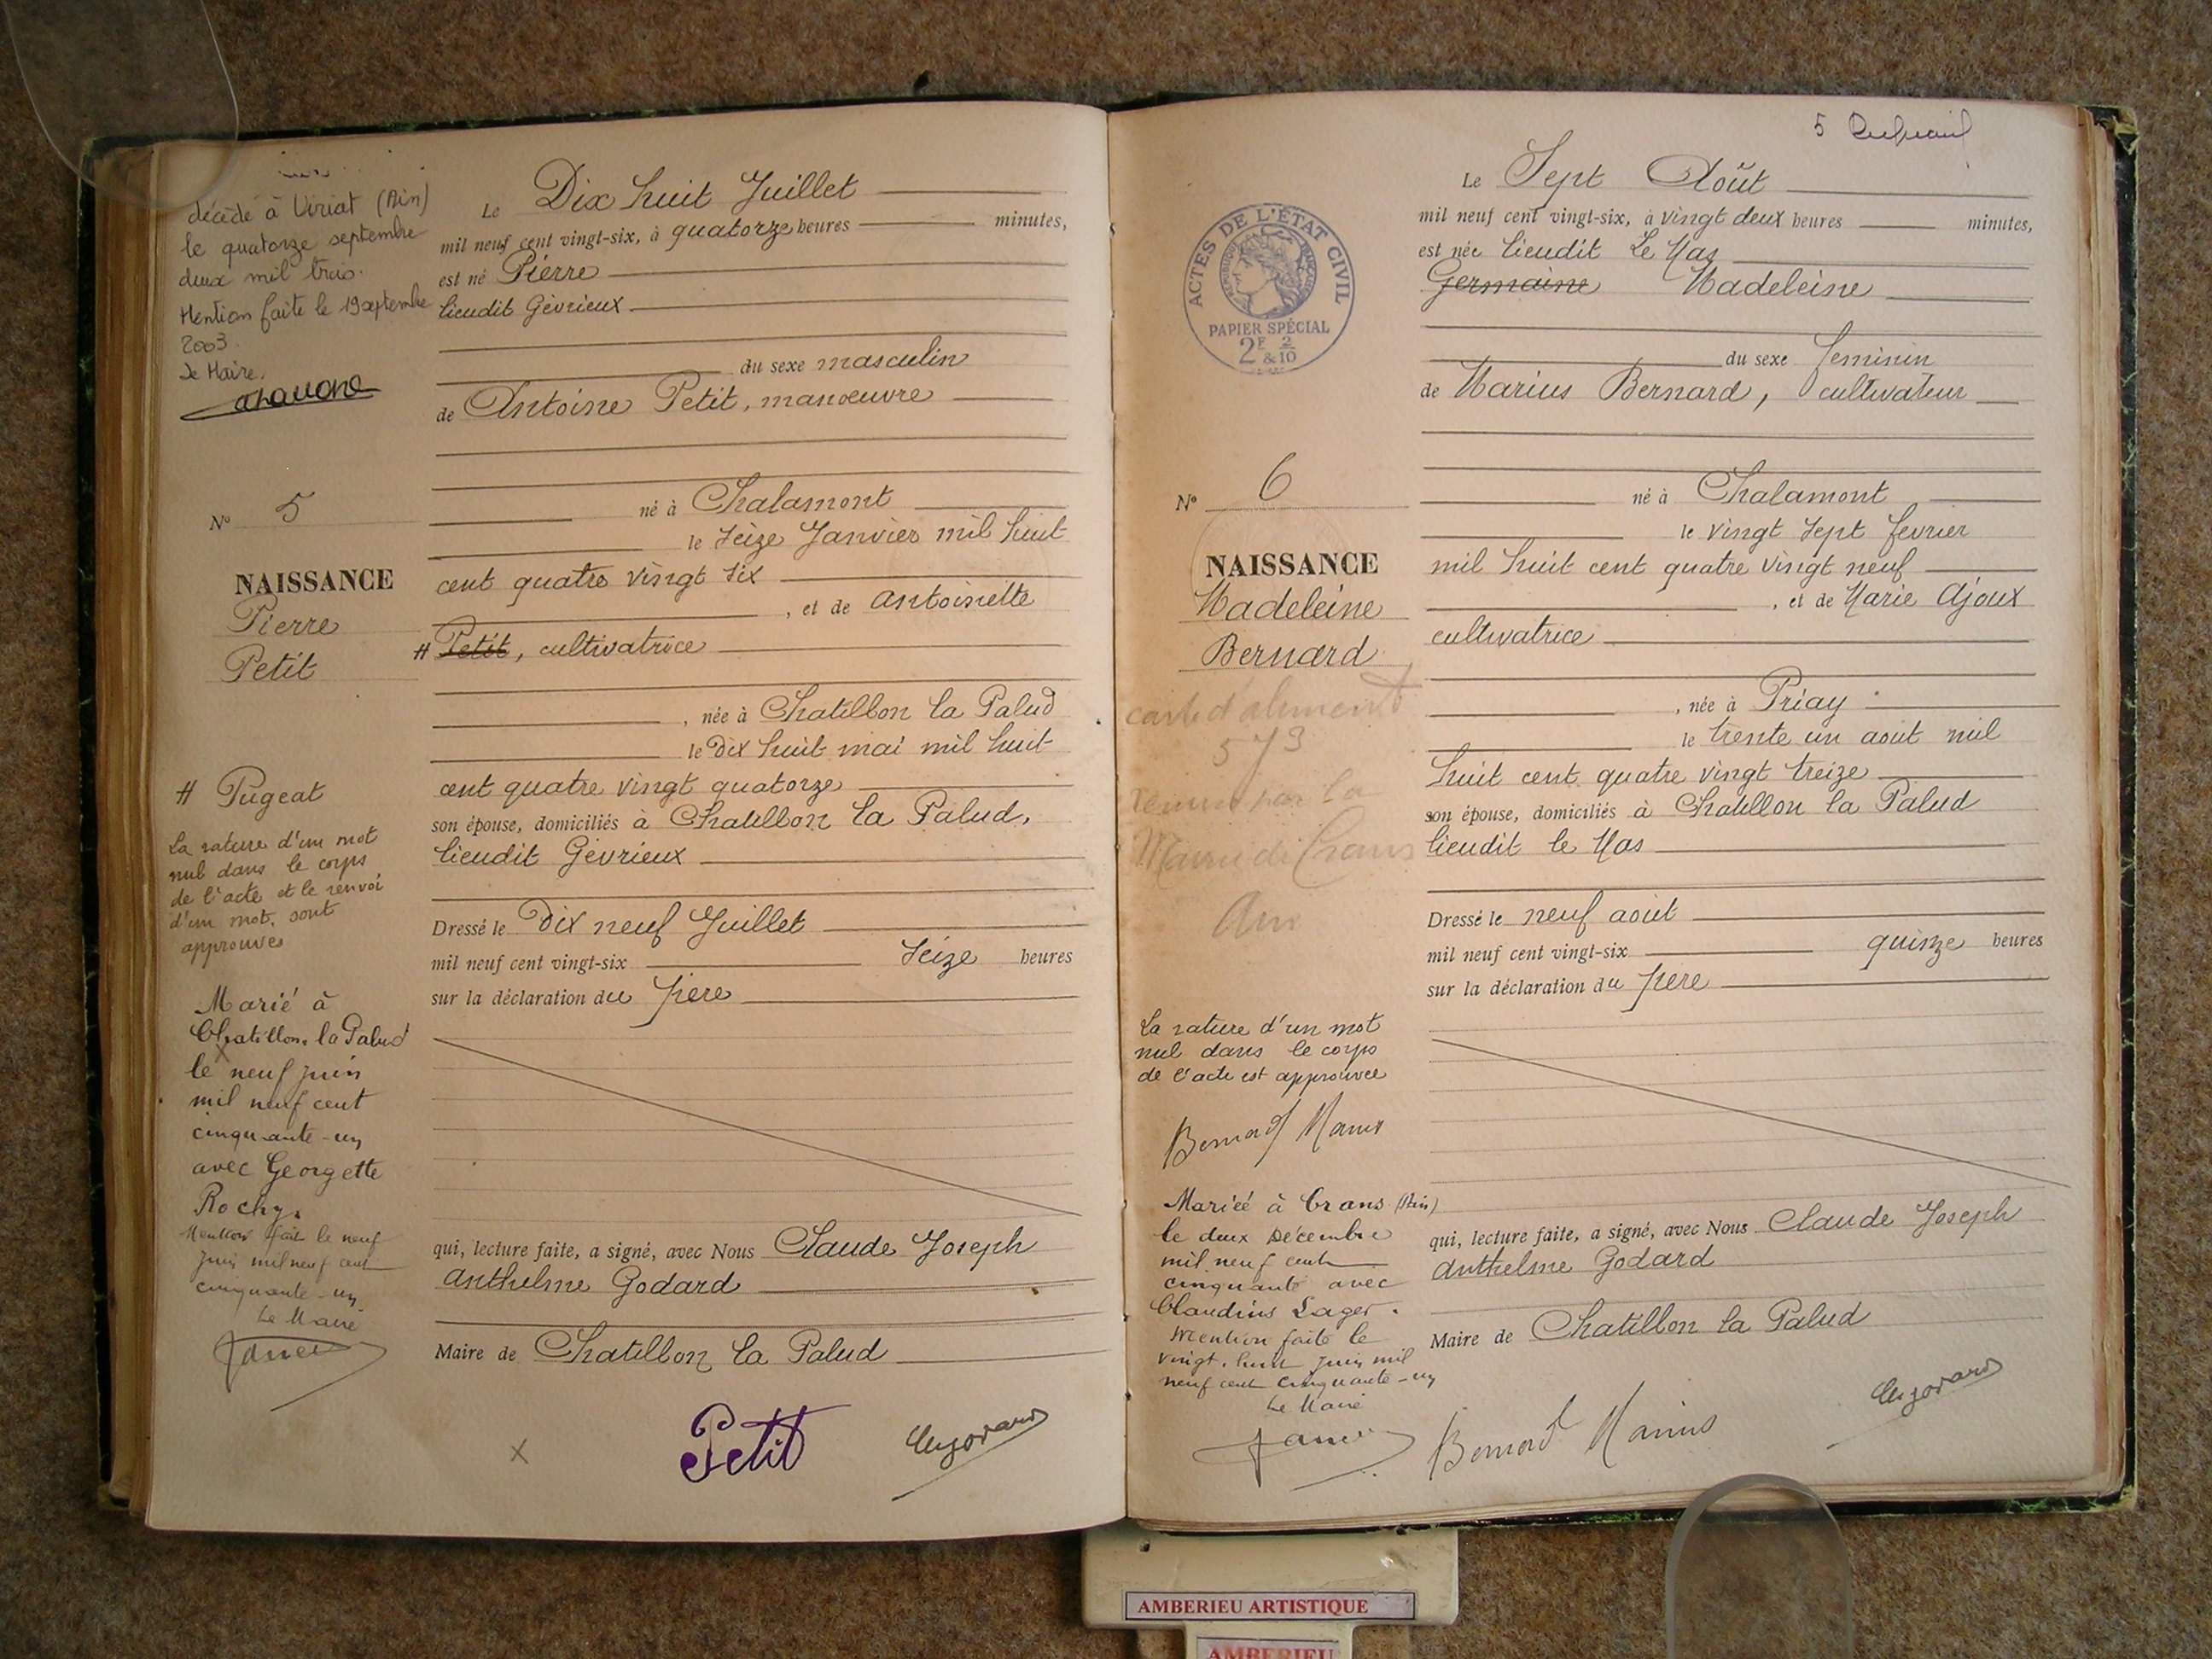 décédé à Viriat (Ain)
le quatorze septembre
deux mil trois.
Mention faite le 19 septembre
2003.
Le Maire.
N° 5
NAISSANCE
Pierre
Petit
# Pugeat
La rature d'un mot
nul dans le corps
de l'acte et le renvoi
d'un mot, sont
approuvés
Marié à
Chatillon la Palud
le neuf juin
mil neuf cent
cinquante-un
avec Georgette
Rochy.
Mention faite le neuf
juin mil neuf cent
cinquante-un
Le Maire
Le Dix huit Juillet
mil neuf cent vingt-six, à quatorze heures minutes,
est né Pierre
lieudit Gévrieux
du sexe masculin
de Antoine Petit, manoeuvre
né à Chalamont
le seize Janvier mil huit
cent quatre vingt six
, et de Antoinette
# Petit, cultivatrice
, née à Chatillon la Palud
le dix huit mai mil huit
cent quatre vingt quatorze
son épouse, domiciliés à Chatillon la Palud,
lieudit Gévrieux
Dressé le dix neuf Juillet
mil neuf cent vingt-six seize heures
sur la déclaration du père
qui, lecture faite, a signé, avec Nous Claude Joseph
Anthelme Godard
Maire de Chatillon la Palud
Petit
5
ACTES DE L'ÉTAT CIVIL
PAPIER SPÉCIAL
2F 2
& 10
N° 6
NAISSANCE
Madeleine
Bernard
carte d'aliment
573
par la
Mairie de Crans
Ain
La rature d'un mot
nul dans le corps
de l'acte est approuvée
Bernard Marius
Mariée à Crans (Ain)
le deux Décembre
mil neuf cent
cinquante avec
Claudius Lager.
Mention faite le
vingt-huit juin mil
neuf cent cinquante-un
Le Maire
Le Sept Août
mil neuf cent vingt-six, à vingt deux heures minutes,
est née lieudit Le Mas
Germaine Madeleine
du sexe feminin
de Marius Bernard, cultivateur
né à Chalamont
le vingt sept fevrier
mil huit cent quatre vingt neuf
, et de Marie Ajoux
cultivatrice
, née à Priay
le trente un aout mil
huit cent quatre vingt treize
son épouse, domiciliés à Chatillon la Palud
lieudit le Mas
Dressé le neuf aout
mil neuf cent vingt-six quinze heures
sur la déclaration du père
qui, lecture faite, a signé, avec Nous Claude Joseph
Anthelme Godard
Maire de Chatillon la Palud
Bernard Marius
AMBERIEU ARTISTIQUE
AMBERIEU